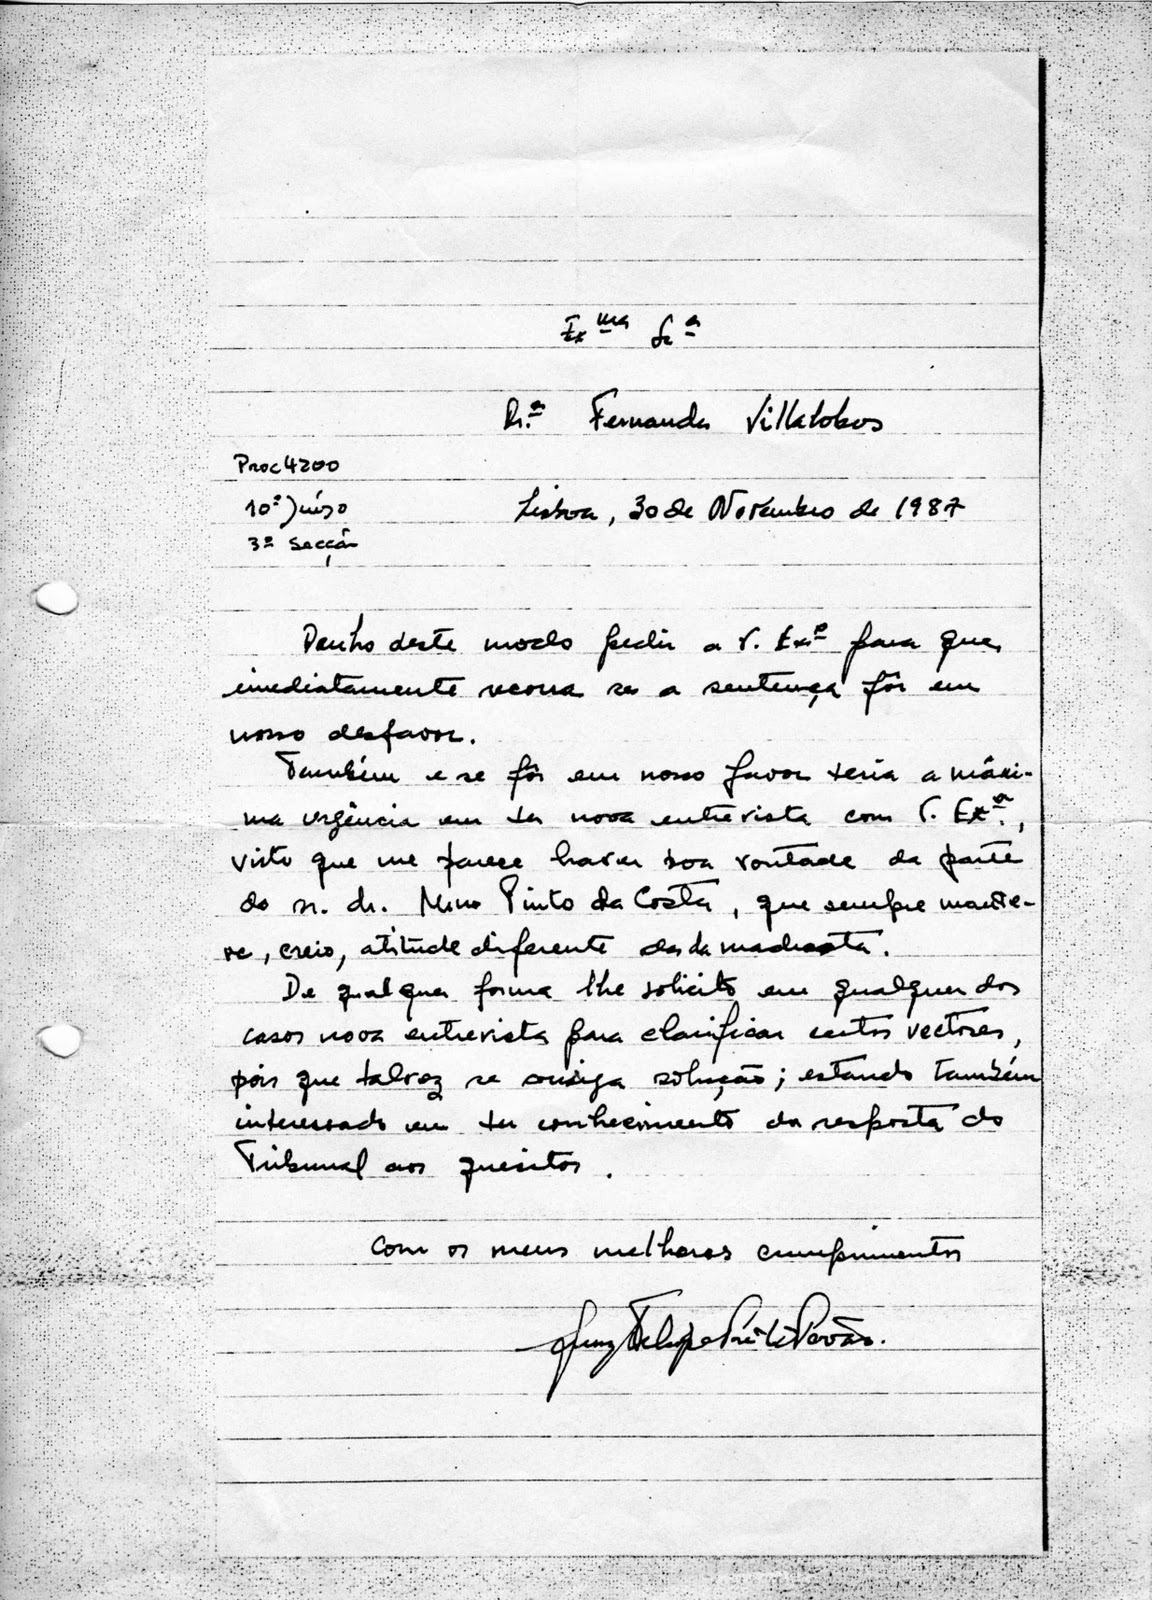 Exma Sra
Dr.ª Fernanda Villalobos
Proc 4200
10º Juízo
3ª Secção
Lisboa, 30 de Novembro de 1987
Venho deste modo pedir a V. Exª para que
imediatamente recorra se a sentença fôr em
nosso desfavor.
Também e se fôr em nosso favor teria a máxi-
ma urgência em ter nova entrevista com V. Exª.,
visto que me parece haver boa vontade da parte
do sr. dr. Nuno Pinto da Costa, que sempre mante-
ve, creio, atitude diferente da da madrasta.
De qualquer forma lhe solicito em qualquer dos
casos nova entrevista para clarificar certos vectores,
pois que talvez se consiga solução; estando também
interessado em ter conhecimento da resposta do
Tribunal aos quesitos.
Com os meus melhores cumprimentos